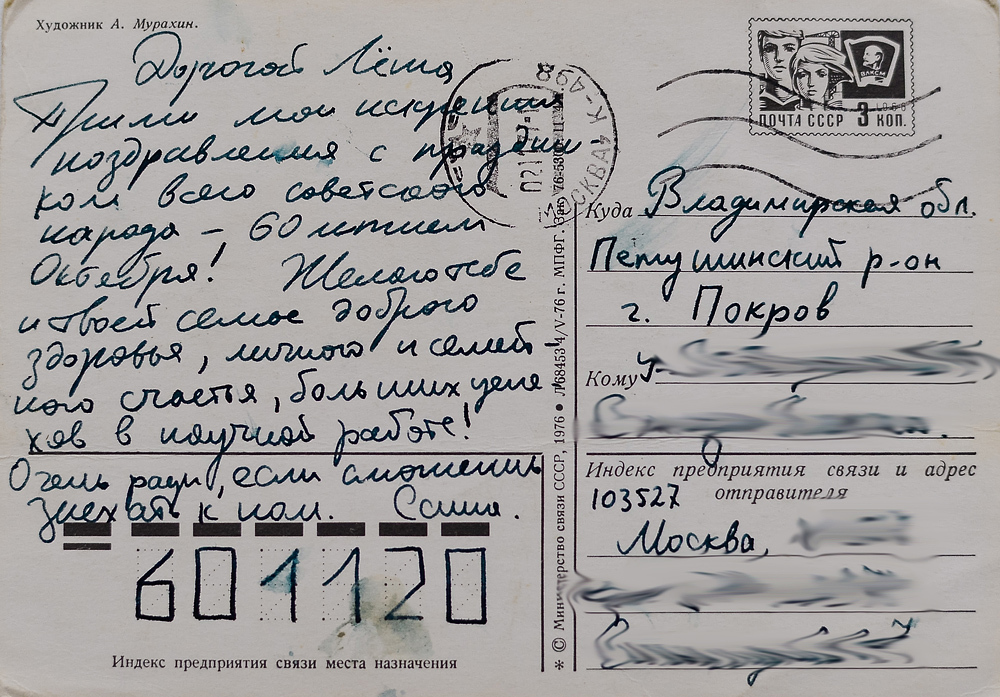 Художник А. Мурахин.
Дорогой Лёша
Прими мои искренние
поздравления с праздни
ком всего советского
народа – 60 летием
Октября! Желаю тебе
и твоей семье доброго
здоровья, личного и семей-
ного счастья, больших успе
хов в научной работе!
Очень рады, если сможешь
заехать к нам. Саша.
601120
Индекс предприятия связи места назначения
* © Министерство связи СССР, 1976 ● Л68453 4/V-76 г. МПФГ. Зак. 76-530
МОСКВА К-498
ВЛКСМ
1966
ПОЧТА СССР 3 КОП.
Куда Владимирская обл.
Петушинский р-он
г. Покров
Кому
Индекс предприятия связи и адрес
отправителя
103527
Москва,